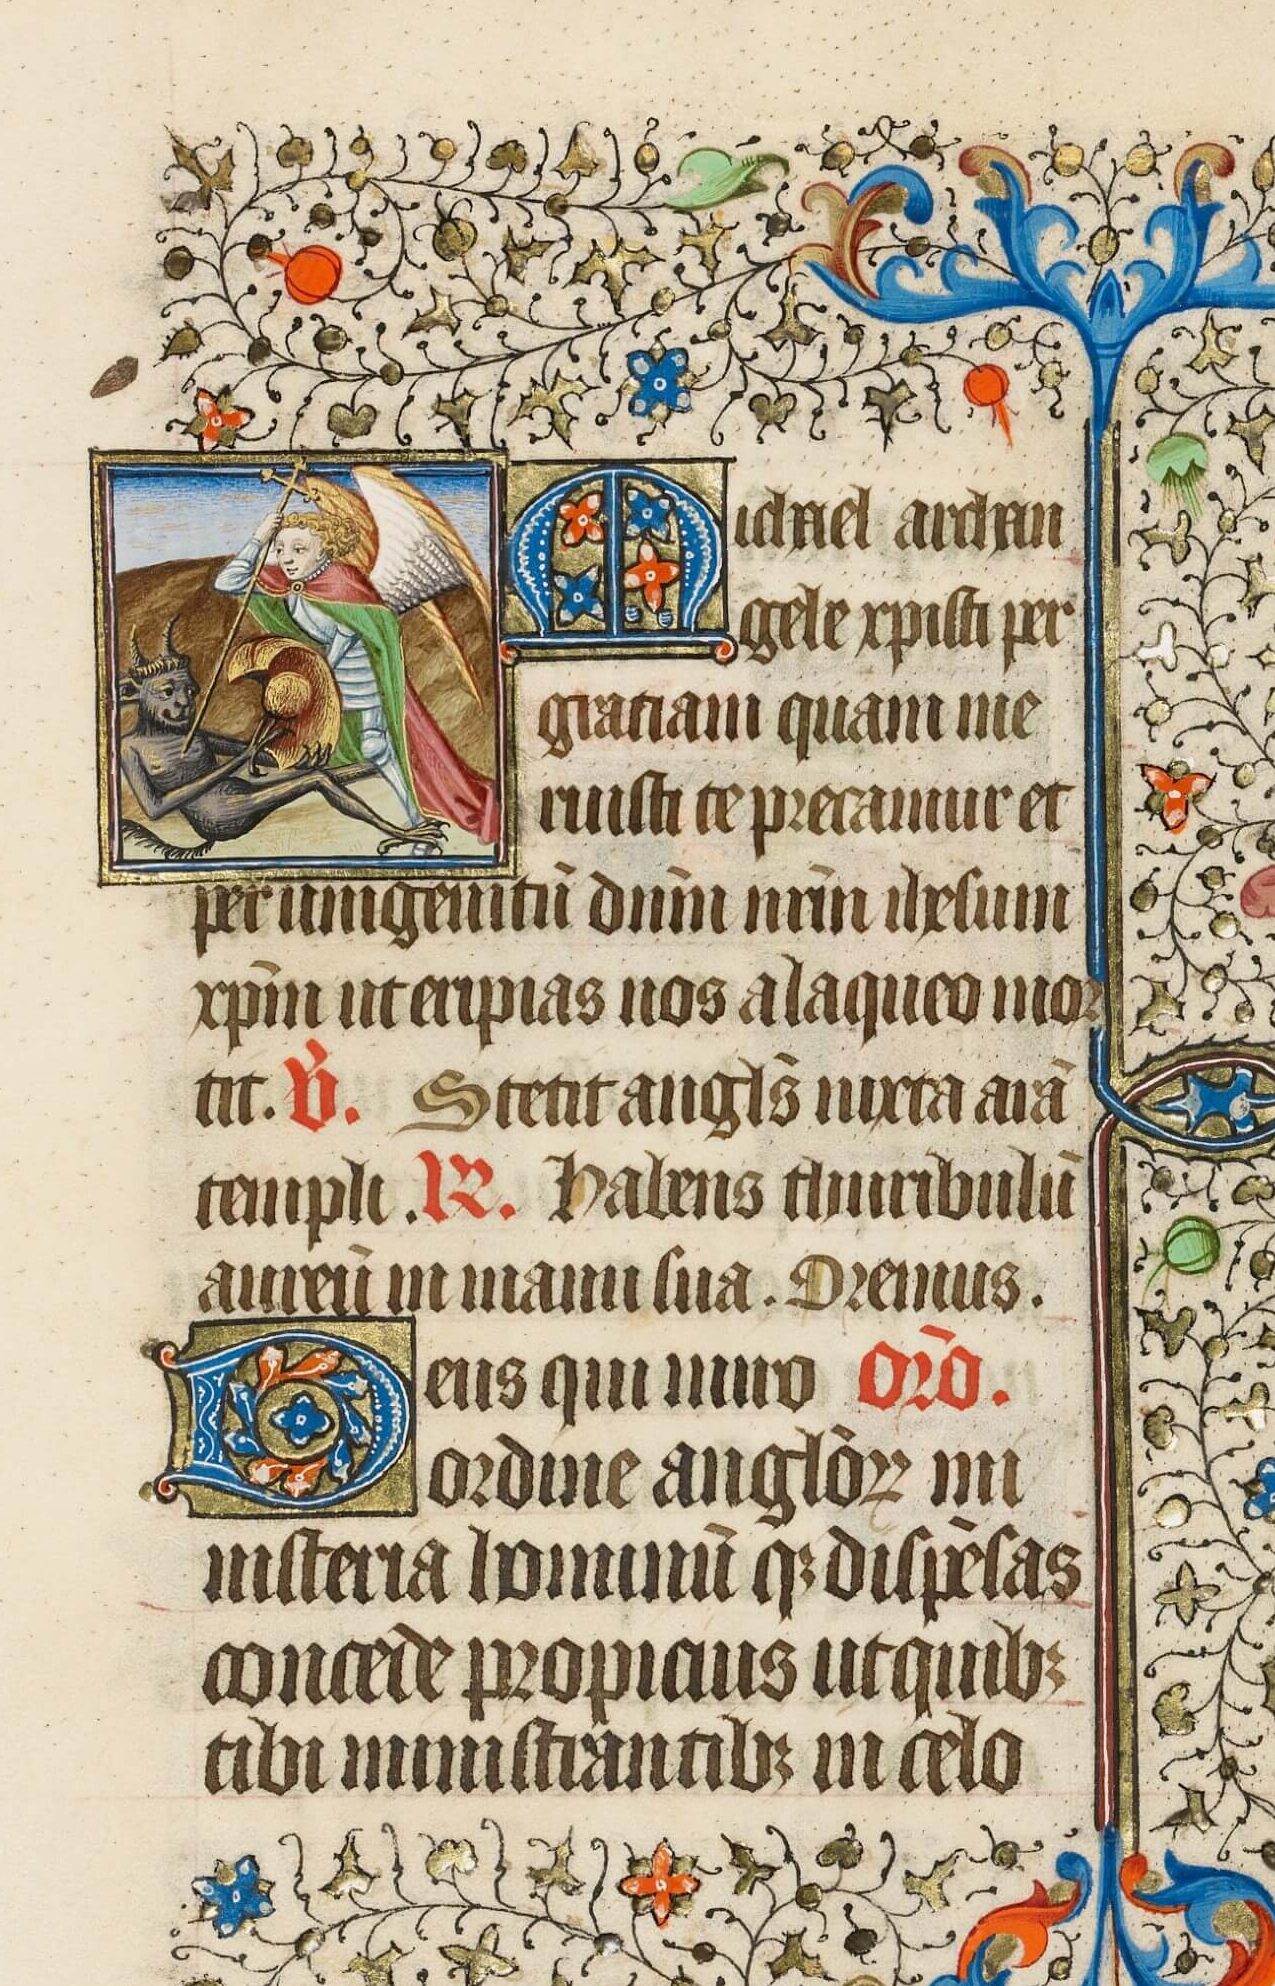 Michael archan
gele xpisti per
gratiam quam me
ruisti te precamur et
per unigenitū dn̄m nr̄m ihesum
xp̄m ut eripias nos a laqueo mor
tit. V̄. Stetit angl̄s iuxta arā
templi. R. Habens thuribulū
aureū in manu sua. Oremus.
Deus qui miro Orō.
ordine angl̄oꝝ mi
nisteria hominūqꝫ dispēsas
concede propicius ut quibꝫ
tibi ministrantibꝫ in celo